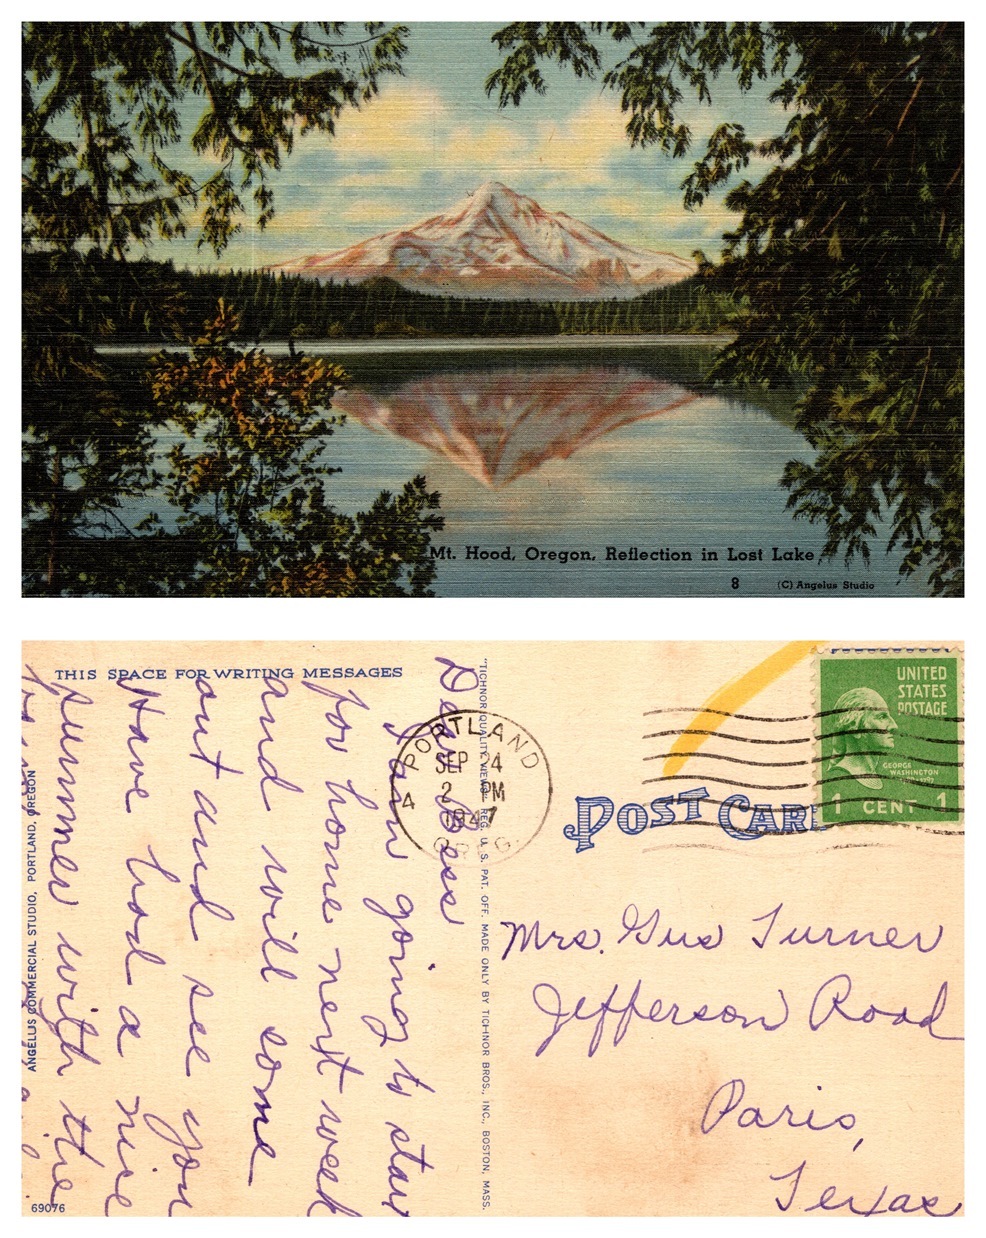 Mt. Hood, Oregon. Reflection in Lost Lake
8 (C) Angelus Studio
THIS SPACE FOR WRITING MESSAGES
Dear Bess
I am going to start
for home next week
and will come
out and see you
Have had a nice
summer with the
ANGELUS COMMERCIAL STUDIO, PORTLAND, OREGON
69076
"TICHNOR QUALITY VIEWS" REG. U. S. PAT. OFF. MADE ONLY BY TICHNOR BROS., INC., BOSTON, MASS.
PORTLAND
SEP 24
2 PM
4
1947
OREG.
POST CARD
UNITED
STATES
POSTAGE
GEORGE
WASHINGTON
1 CENT 1
Mrs. Gus Turner
Jefferson Road
Paris,
Texas